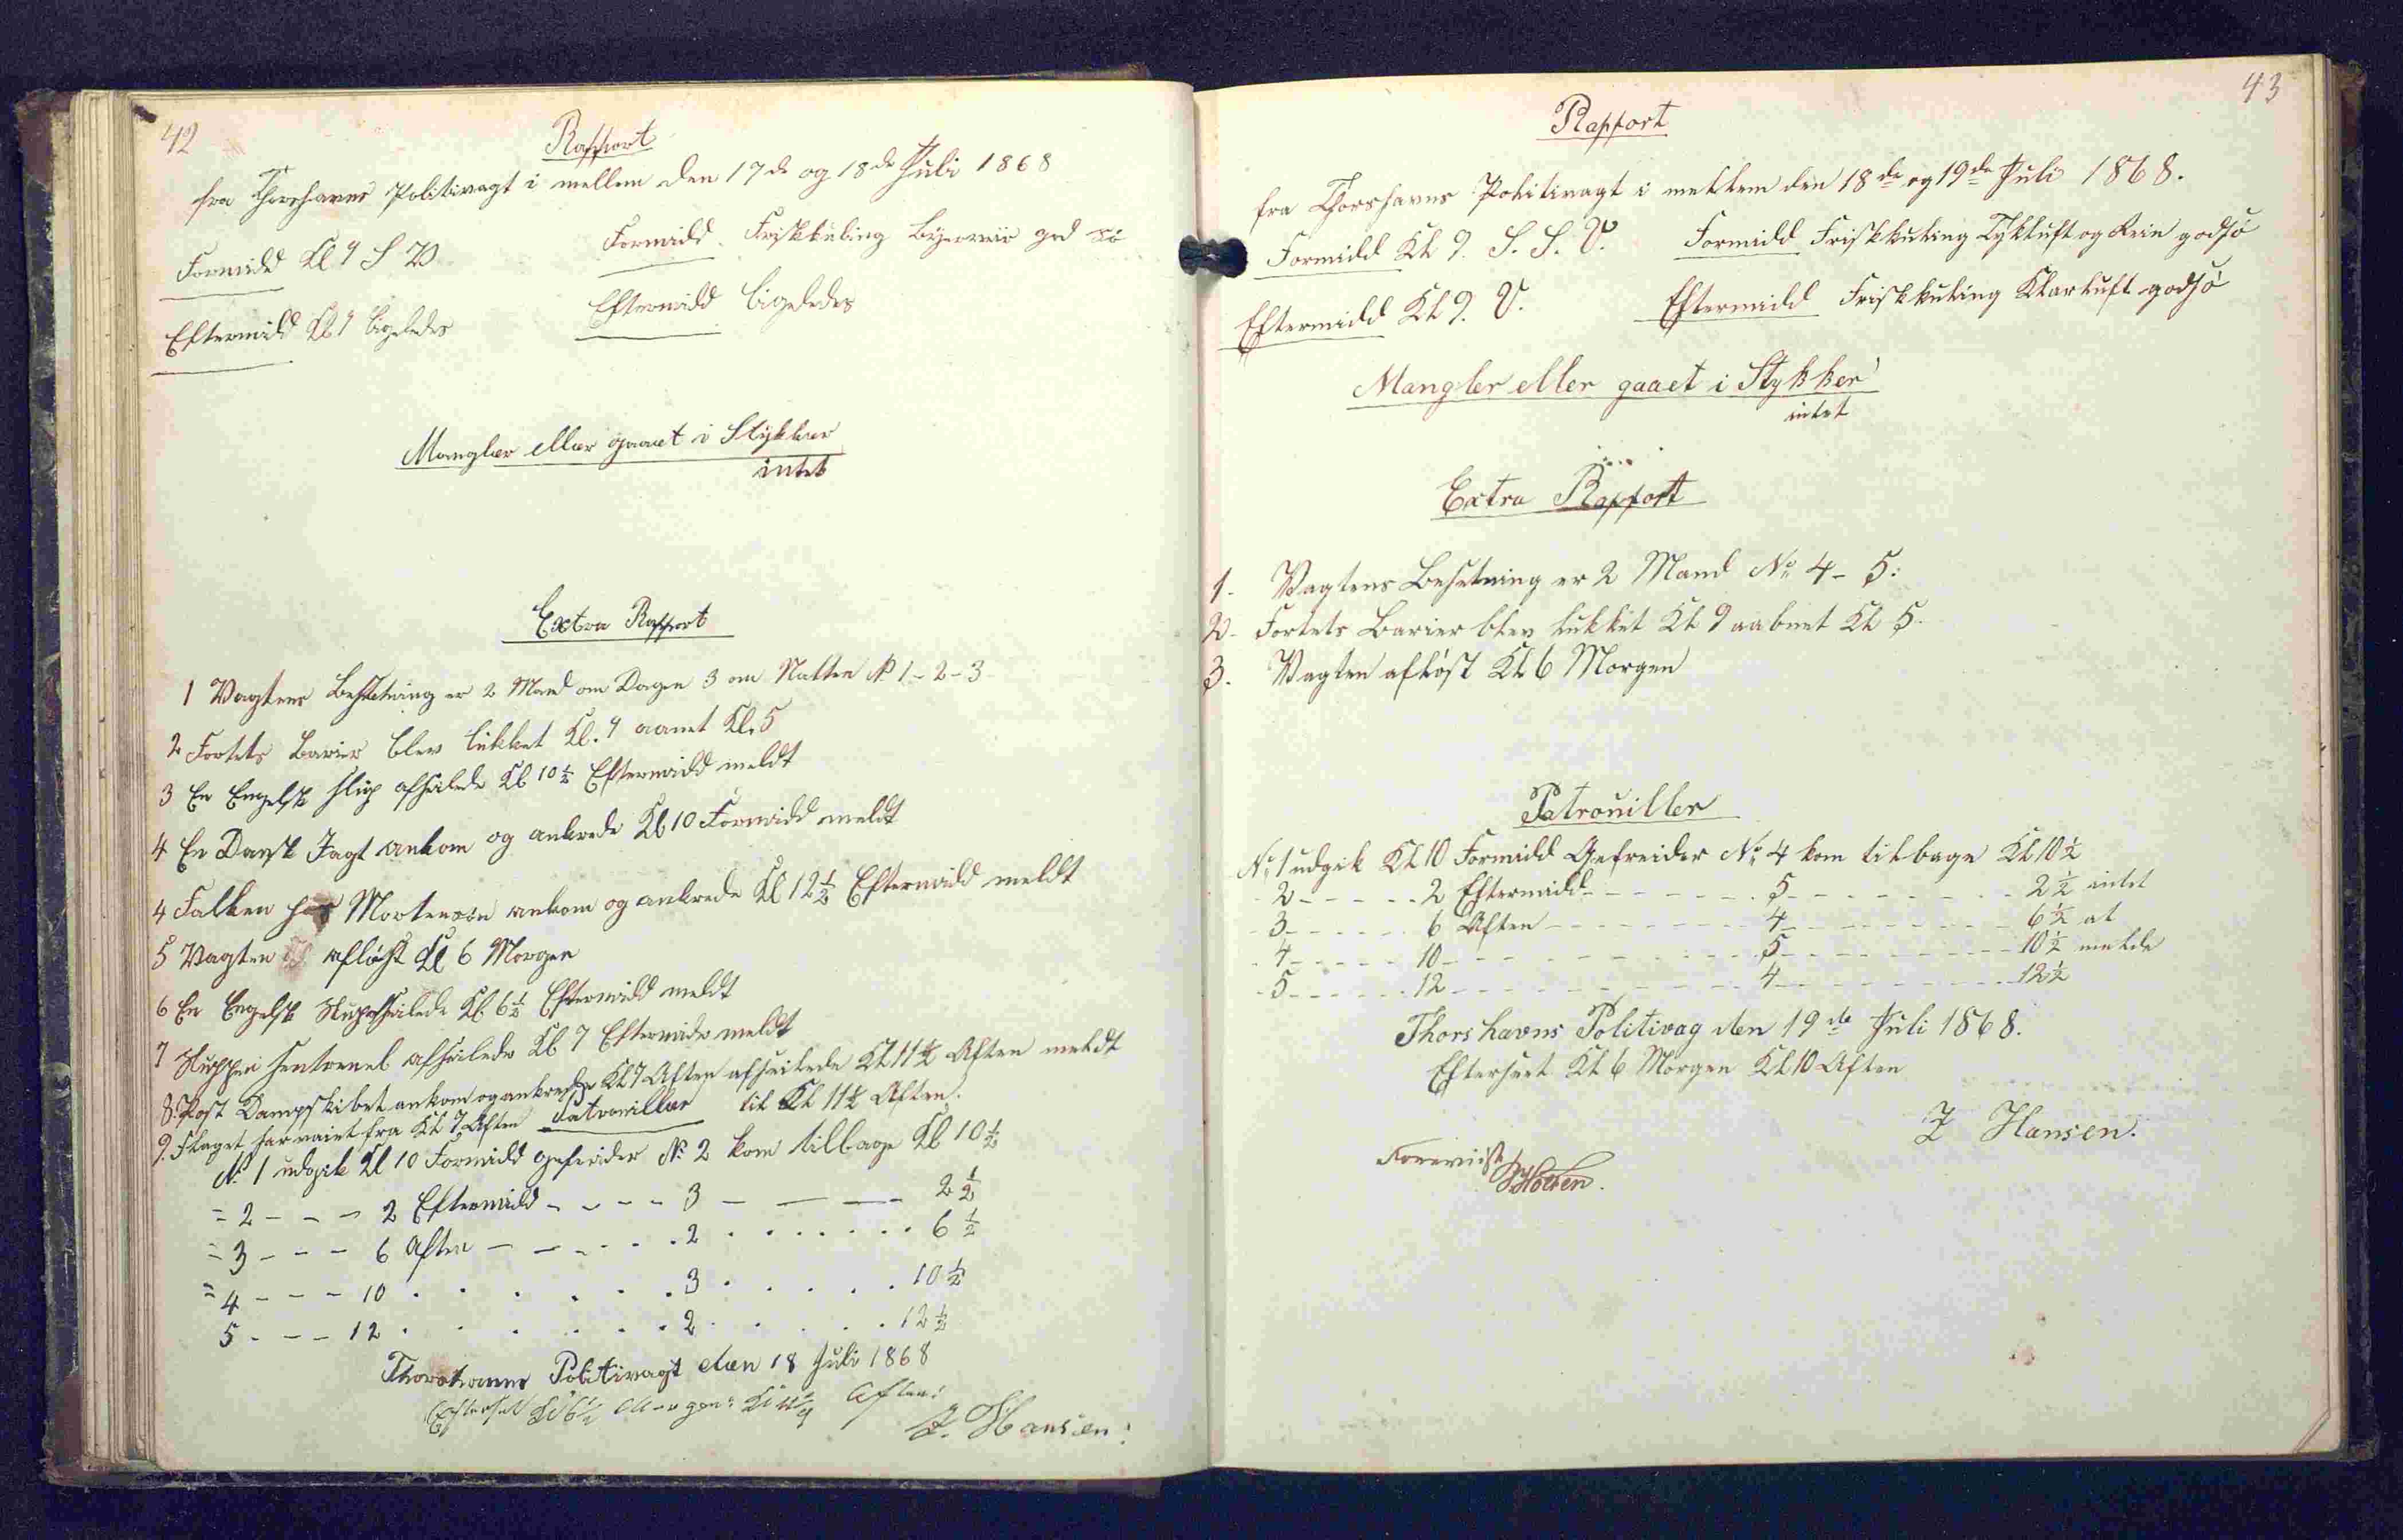 42
Rapport
fra Thorshavns Politivagt i mellem den 17de og 18de Juli 1868
Formidd Kl 9 S V Formidd Friskkuling Byerveir god Sö
Eftermidd Kl 9 ligeledes Eftermidd ligeledes
Mangler eller gaaet i Stykker
intet
Extra Rapport
1 Vagtens Besetning er 2 Mand om Dagen 3 om Natten No 1-2-3
2 Fortets Barier blev lukket Kl. 9 aanet Kl. 5
3 En Engelsk Slup afseilede Kl 10 1/2 Eftermidd meldt
4 En Dansk Jagt ankom og ankrede Kl 10 Formidd meldt
4 Falken Mortensön ankom og ankrede Kl 12 1/2 Eftermidd meldt
5 Vagten aflöst Kl 6 Morgen
6 En Engelsk Kl 6 1/2 Eftermidd meldt
7 afseilede Kl 7 Eftermidd meldt
8. Post Dampskibet ankom og ankrede Kl 7 Aften afseilede Kl 11 1/2 Aften meldt
9. Flaget har vaiet fra Kl 7 Aften til Kl 11 1/2 Aften.
Patrouiller
No 1 udgik Kl 10 Formidd Gefreider No 2 kom tilbage Kl 10 1/2
= 2 - - - 2 Eftermidd - - - - 3 - - - 2 1/2
= 3 - - - 6 Aften - - - - - 2 . . . . . . . 6 1/2
= 4 - - - 10 . . . . . . 3 . . . . . 10 1/2
5 - - - 12 . . . . . . 2 . . . . . 12 1/2
Thorshavns Politivagt den 18 Juli 1868
Efterseet Kl 6 1/2 Morgen: Kl Aften:
J. Hansen:
43
Rapport
fra Thorshavns Politivagt i mellem den 18de og 19de Juli 1868.
Formidd Kl 9. S. S. V. Formidd Friskkuling Tykluft og Rein godsö
Eftermidd Kl 9. V. Eftermidd Friskkuling Klarluft godsö
Mangler eller gaaet i Stykker
intet
Extra Rapport
1. Vagtens Besetning er 2 Mand No 4 - 5:
2- Fortets Barier blev lukket Kl 9 aabnet Kl 5.
3. Vagten aflöst Kl 6 Morgen
Patrouiller
No 1 udgik Kl 10 Formidd Gefreider No 4 kom tilbage Kl 10 1/2
- 2 - - - - - 2 Eftermidd - - - - - - 5 - - - - - - 2 1/2 intet
- 3 - - - - - 6 Aften - - - - - - - 4 - - - - - - 6 1/2 at
- 4 - - - - - 10 - - - - - - - - 5 - - - - - - 10 1/2 melde
- 5 - - - - - 12 - - - - - - - - 4 - - - - - - 12 1/2
Thorshavns Politivag den 19de Juli 1868.
Efterseet Kl 6 Morgen Kl 10 Aften
J Hansen.
Foreviist